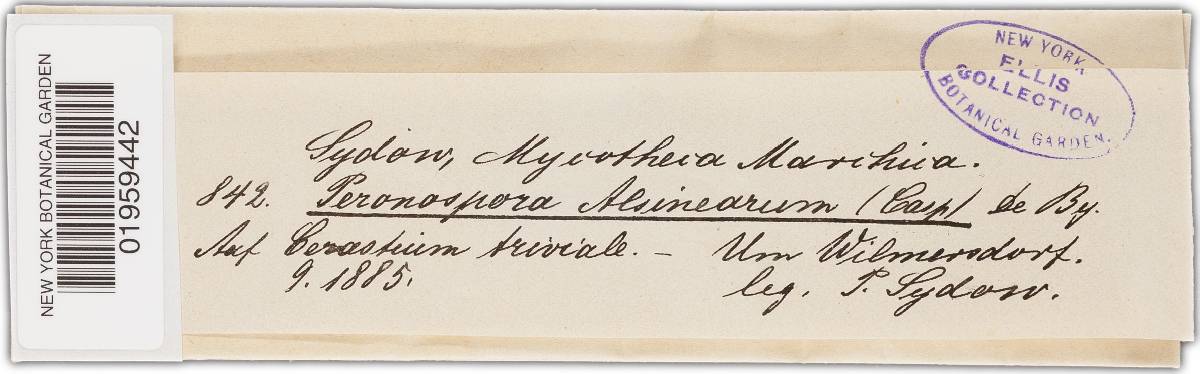 NEW YORK BOTANICAL GARDEN
01959442
NEW YORK
ELLIS
COLLECTION
BOTANICAL GARDEN.
Sydow, Mycotheca Marchica.
842. Peronospora Alsinearum (Casp) de By.
Auf Cerastium triviale. – Um Wilmersdorf.
9. 1885. leg. P. Sydow.